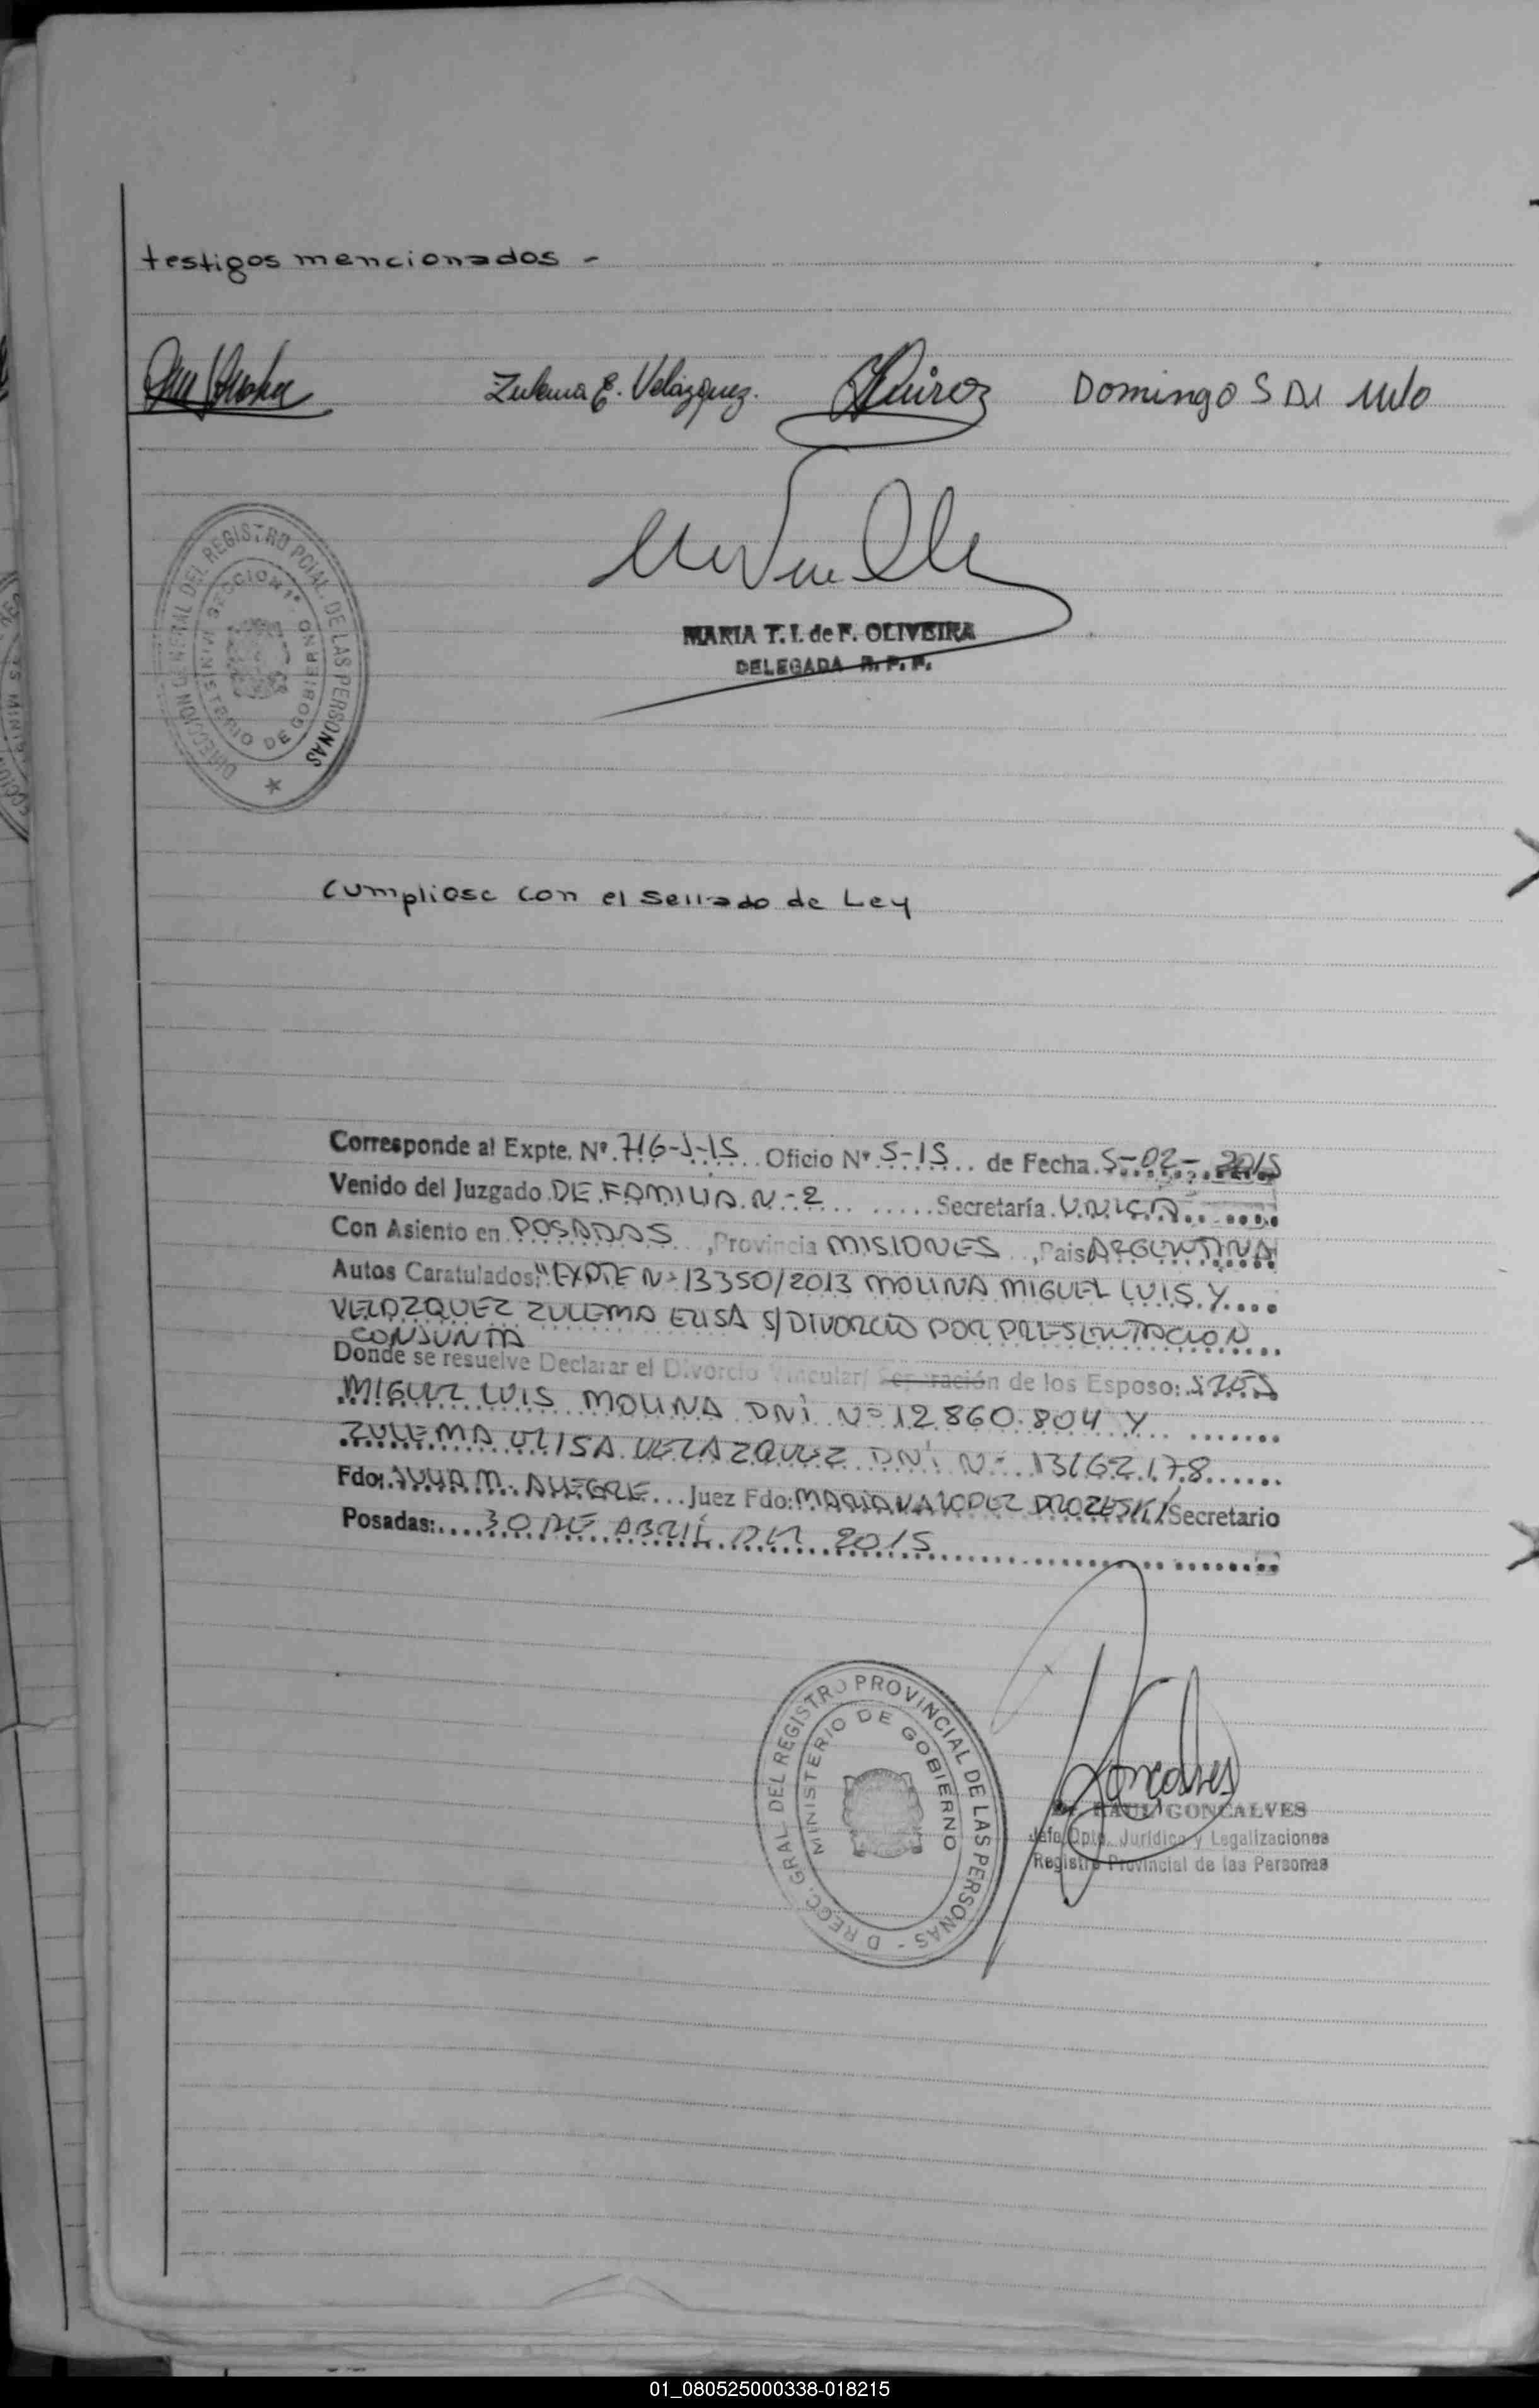 testigos mencionados -
Zulema E. Velázquez. Quiroz Domingo S Di
DIRECCION GENERAL DEL REGISTRO PCIAL. DE LAS PERSONAS
MINISTERIO DE GOBIERNO SECCION 1ª
MARIA T. I. de F. OLIVEIRA
DELEGADA R. P. P.
Cumpliose con el sellado de Ley
Corresponde al Expte. Nº 716-J-15 Oficio Nº 5-15 de Fecha 5-02-2015
Venido del Juzgado DE FAMILIA N-2 Secretaría UNICA
Con Asiento en POSADAS, Provincia MISIONES, Pais ARGENTINA
Autos Caratulados: "EXPTE Nº 13350/2013 MOLINA MIGUEL LUIS Y
VELAZQUEZ ZULEMA ELISA S/DIVORCIO POR PRESENTACION
CONJUNTA
Donde se resuelve Declarar el Divorcio Vincular/ Separación de los Esposo: SRES
MIGUEL LUIS MOLINA DNI Nº 12.860.804 Y
ZULEMA ELISA VELAZQUEZ DNI Nº 13162178
Fdo: JULIA M. ALEGRE Juez Fdo: MARIANA LOPEZ Secretario
Posadas: 30 DE ABRIL DEL 2015
DIRECC. GRAL. DEL REGISTRO PROVINCIAL DE LAS PERSONAS -
MINISTERIO DE GOBIERNO
Goncalves
RAUL GONCALVES
Jefe Dpto. Jurídico y Legalizaciones
Registro Provincial de las Personas
01_080525000338-018215